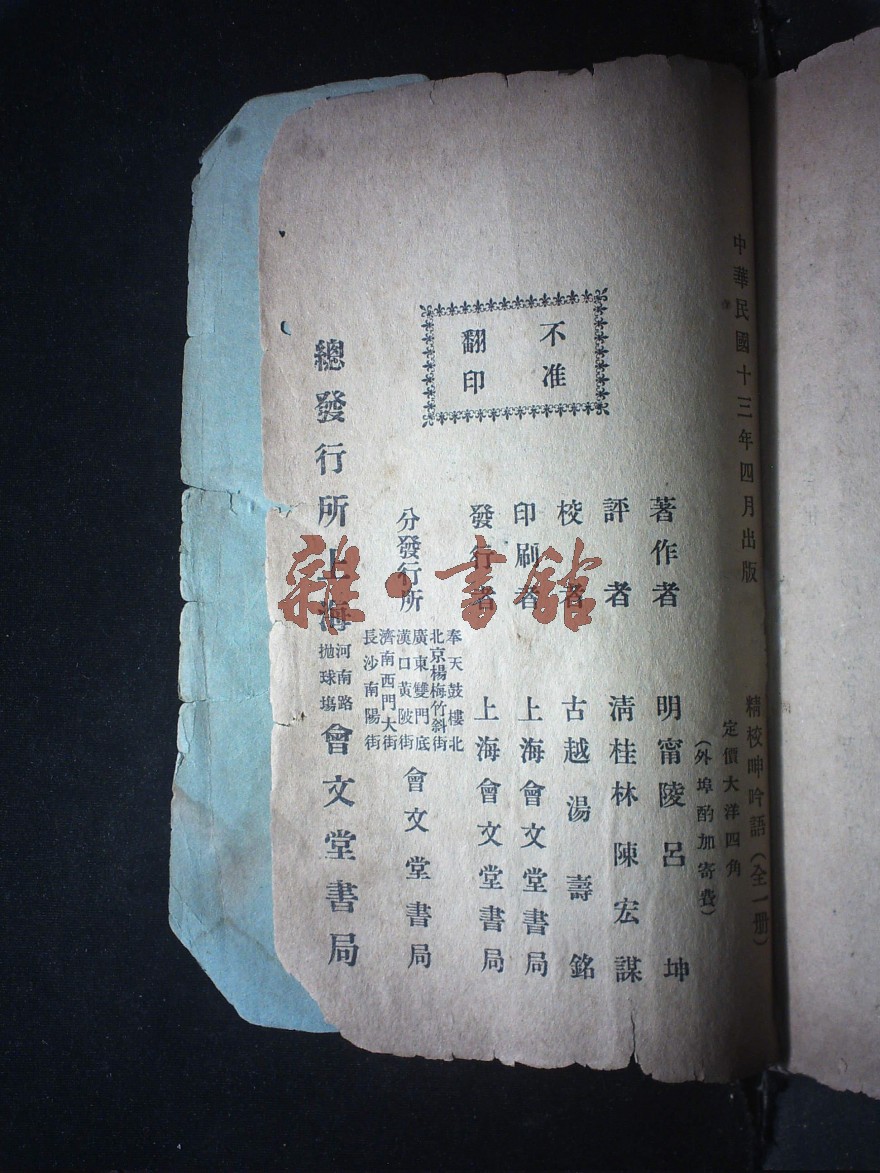 中華民國十三年四月出版
精校呻吟語（全一册）
定價大洋四角
（外埠酌加寄費）
著作者 明甯陵呂坤
評者 清桂林陳宏謀
校者 古越湯壽銘
印刷者 上海會文堂書局
發行者 上海會文堂書局
不准
翻印
分發行所
奉天鼓樓北
北京楊梅竹斜街
廣東雙門底
漢口黃陂街
濟南西門大街
長沙南陽街
會文堂書局
總發行所上海
河南路
拋球場
會文堂書局
雜·書館